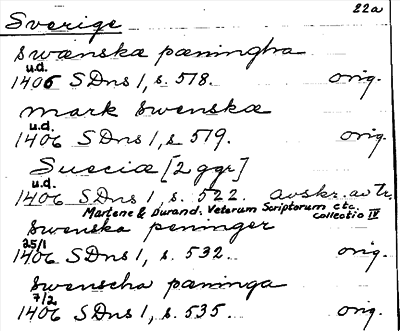 22a
Sverige
swænska pæningha
u.d.
1406 SDns 1, s. 518. orig.
mark swenska
u.d.
1406 SDns 1, s. 519. orig.
Sueciæ [2 ggr]
u.d.
1406 SDns 1, s. 522. avskr. av tr.
Martene & Durand. Veterum Scriptorum etc.
collectio IV
swenska peninger
25/1
1406 SDns 1, s. 532. orig.
swenscha pæninga
7/2
1406 SDns 1, s. 535. orig.